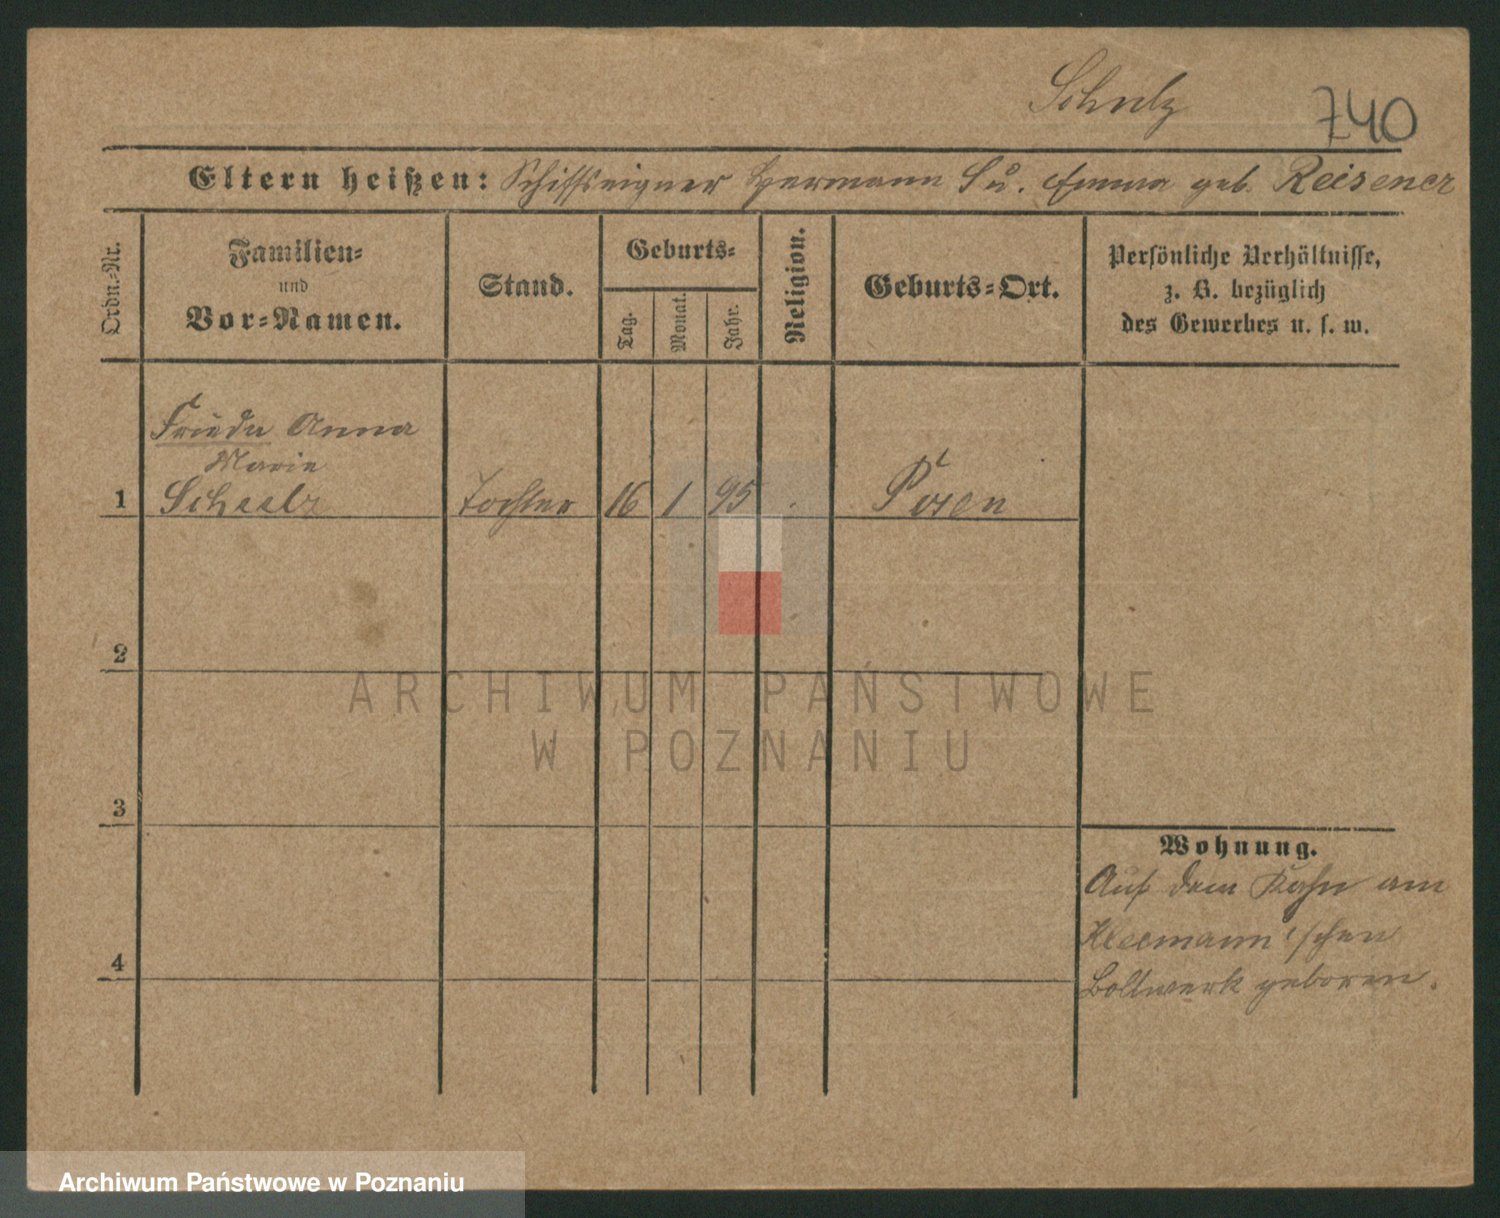 Schulz
740
Eltern heißen: Schiffseigner Hermann S u. Emma geb. Reisener
Ordn.-Nr.
Familien-
und
Vor-Namen.
Stand.
Geburts-
Tag.
Monat.
Jahr.
Religion.
Geburts-Ort.
Persönliche Verhältnisse,
z. B. bezüglich
des Gewerbes u. s. w.
Frieda Anna
Marie
1 Schulz Tochter 16 1 95 . Posen
2
ARCHIWUM PAŃSTWOWE
W POZNANIU
3
Wohnung.
Auf dem Kahn am
Kleemann'schen
4
Bollwerk geboren.
Archiwum Państwowe w Poznaniu